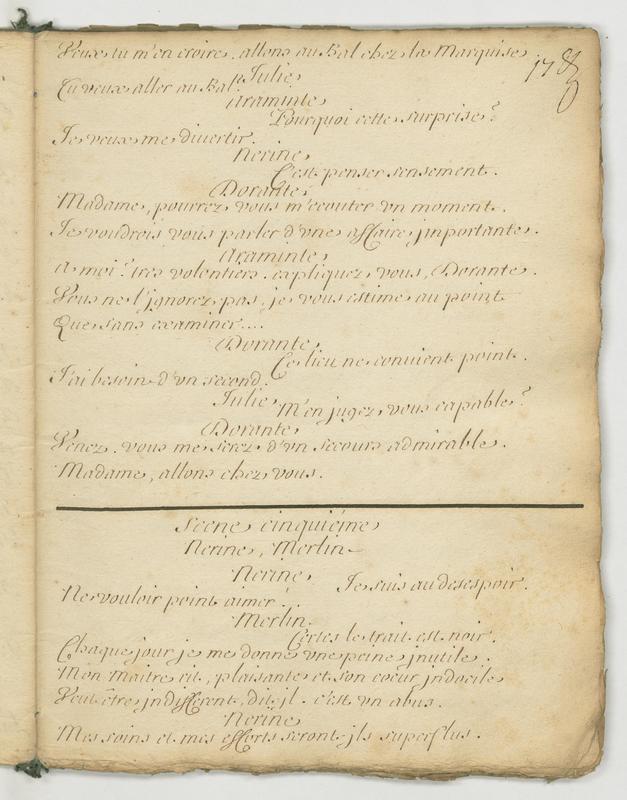 Veux tu m'en croire. allons au Bal chez la Marquise.
Julie
Tu veux aller au Bal?
Araminte
Pourquoi cette surprise?
Je veux me divertir.
Nerine
C'est penser sensement.
Dorante
Madame, pourrez vous m'ecouter un moment.
Je voudrois vous parler d'une affaire jmportante.
Araminte
A moi? tres volentiers. expliquez vous, Dorante.
Vous ne l'jgnorez pas, je vous estime au point
Que sans examiner....
Dorante
Ce lieu ne convient point.
J'ai besoin d'un second.
Julie
M'en jugez vous capable?
Dorante
Venez. vous me serez d'un secours admirable.
Madame, allons chez vous.
Scene cinquiéme
Nerine, Merlin
Nerine
Je suis au desespoir.
Ne vouloir point aimer!
Merlin
Certes le trait est noir.
Chaque jour je me donne une peine jnutile.
Mon Maitre rit, plaisante et son coeur jndocile
Veut être jndifferent, dit jl. c'est un abus.
Nerine
Mes soins et mes efforts seront jls superflus.